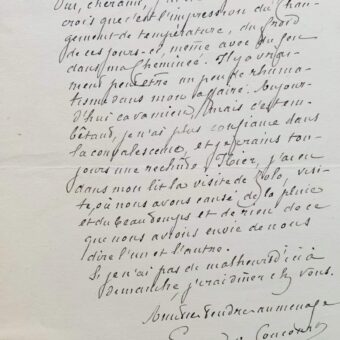 Oui, cher ami, j'ai
crois que c'est l'impression du chan-
gement de température, du froid
de ces jours-ci, même avec du feu
dans ma cheminée. Il y a vrai-
ment peut-être un peu de rhuma-
tisme dans mon affaire. Aujour-
d'hui ça va mieux, mais c'est em-
bêtant, je n'ai plus confiance dans
la convalescence, et je crains tou-
jours une rechute. Hier, j'ai eu
dans mon lit la visite de Zola, visi-
te, où nous avons causé de la pluie
et du beau temps et de rien de ce
que nous avions envie de nous
dire l'un et l'autre.
Si je n'ai pas de malheur d'ici à
dimanche, j'irai dîner chez vous.
Amitié tendre au ménage
de Goncourt